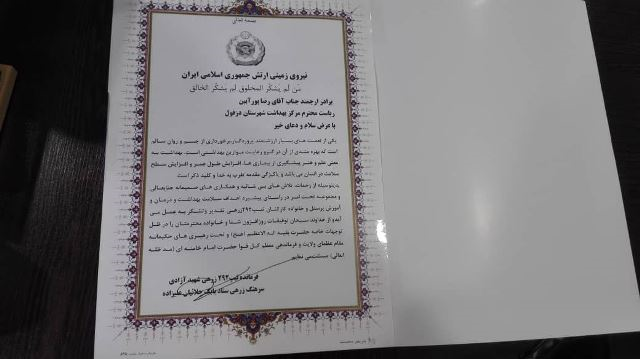 بسمه تعالی
نیروی زمینی ارتش جمهوری اسلامی ایران
مَن لَم یَشکُر المخلوق لَم یَشکُر الخالق
برادر ارجمند جناب آقای رضا پورآیین
ریاست محترم مرکز بهداشت شهرستان دزفول
با عرض سلام و دعای خیر
یکی از نعمت های بسیار ارزشمند پروردگار برخورداری از جسم و روان سالم
است که بهره مندی از آن در گرو رعایت موازین بهداشتی است. بهداشت به
معنی علم و هنر پیشگیری از بیماری ها، افزایش طول عمر و افزایش سطح
سلامت در انسان می باشد و پاکیزگی مقدمه تقرب به خدا و کلید ذکر است
بدینوسیله از زحمات، تلاش های بی شائبه و همکاری های صمیمانه جنابعالی
و مجموعه تحت امر در راستای پیشبرد اهداف سلامت بهداشت و درمان و
آموزش پرسنل و خانواده کارکنان تیپ ۲۹۲ زرهی تقدیر و تشکر به عمل می
آید و از خداوند سبحان توفیقات روزافزون شما و خانواده محترمتان را در ظل
توجهات خاصه حضرت بقیه اله الاعظم (عج) و تحت رهبری های حکیمانه
مقام عظمای ولایت و فرماندهی معظم کل قوا حضرت امام خامنه ای (مد ظله
العالی) مسئلت می نمایم
فرمانده تیپ ۲۹۲ زرهی شهید آزادی
سرهنگ زرهی ستاد بابک جلالیان علیزاده